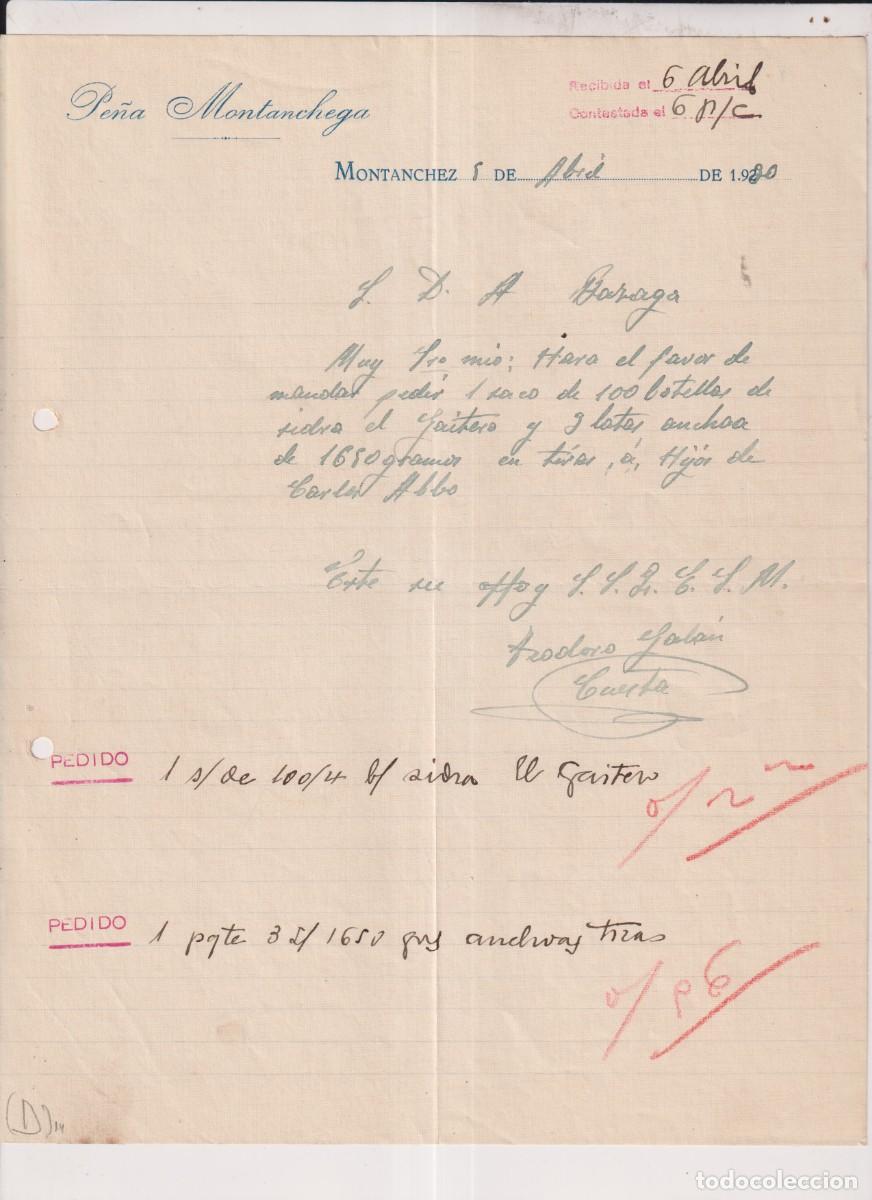 Peña Montanchega
Recibida el 6 Abril
Contestada el 6 p/c
MONTANCHEZ 5 DE Abril DE 1.930
S. D. A Baraga
Muy Sro mio; Hara el favor de
mandar pedir 1 saco de 100 botellas de
sidra el Gaitero y 3 latas anchoa
de 1650 gramos en tiras, á, Hijos de
Carlos Albo
Este su affo y S. S. Q. E. S. M.
Teodoro Galán
Cuesta
PEDIDO 1 s/ de 100/4 b/ sidra El Gaitero
PEDIDO 1 pqte 3 l/ 1650 grs anchoas tiras
(D) 14
todocoleccion